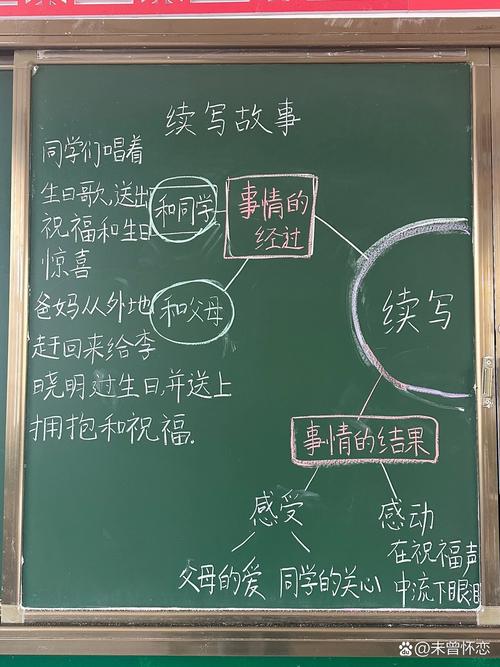 续写故事
同学们唱着
生日歌,送出
祝福和生日
惊喜
和同学
事情的
经过
爸妈从外地
赶回来给李
晓明过生日,并送上
拥抱和祝福.
和父母
续写
事情的结果
感受
父母的爱
同学的关心
感动
在祝福声
中流下眼泪
@未曾怀恋